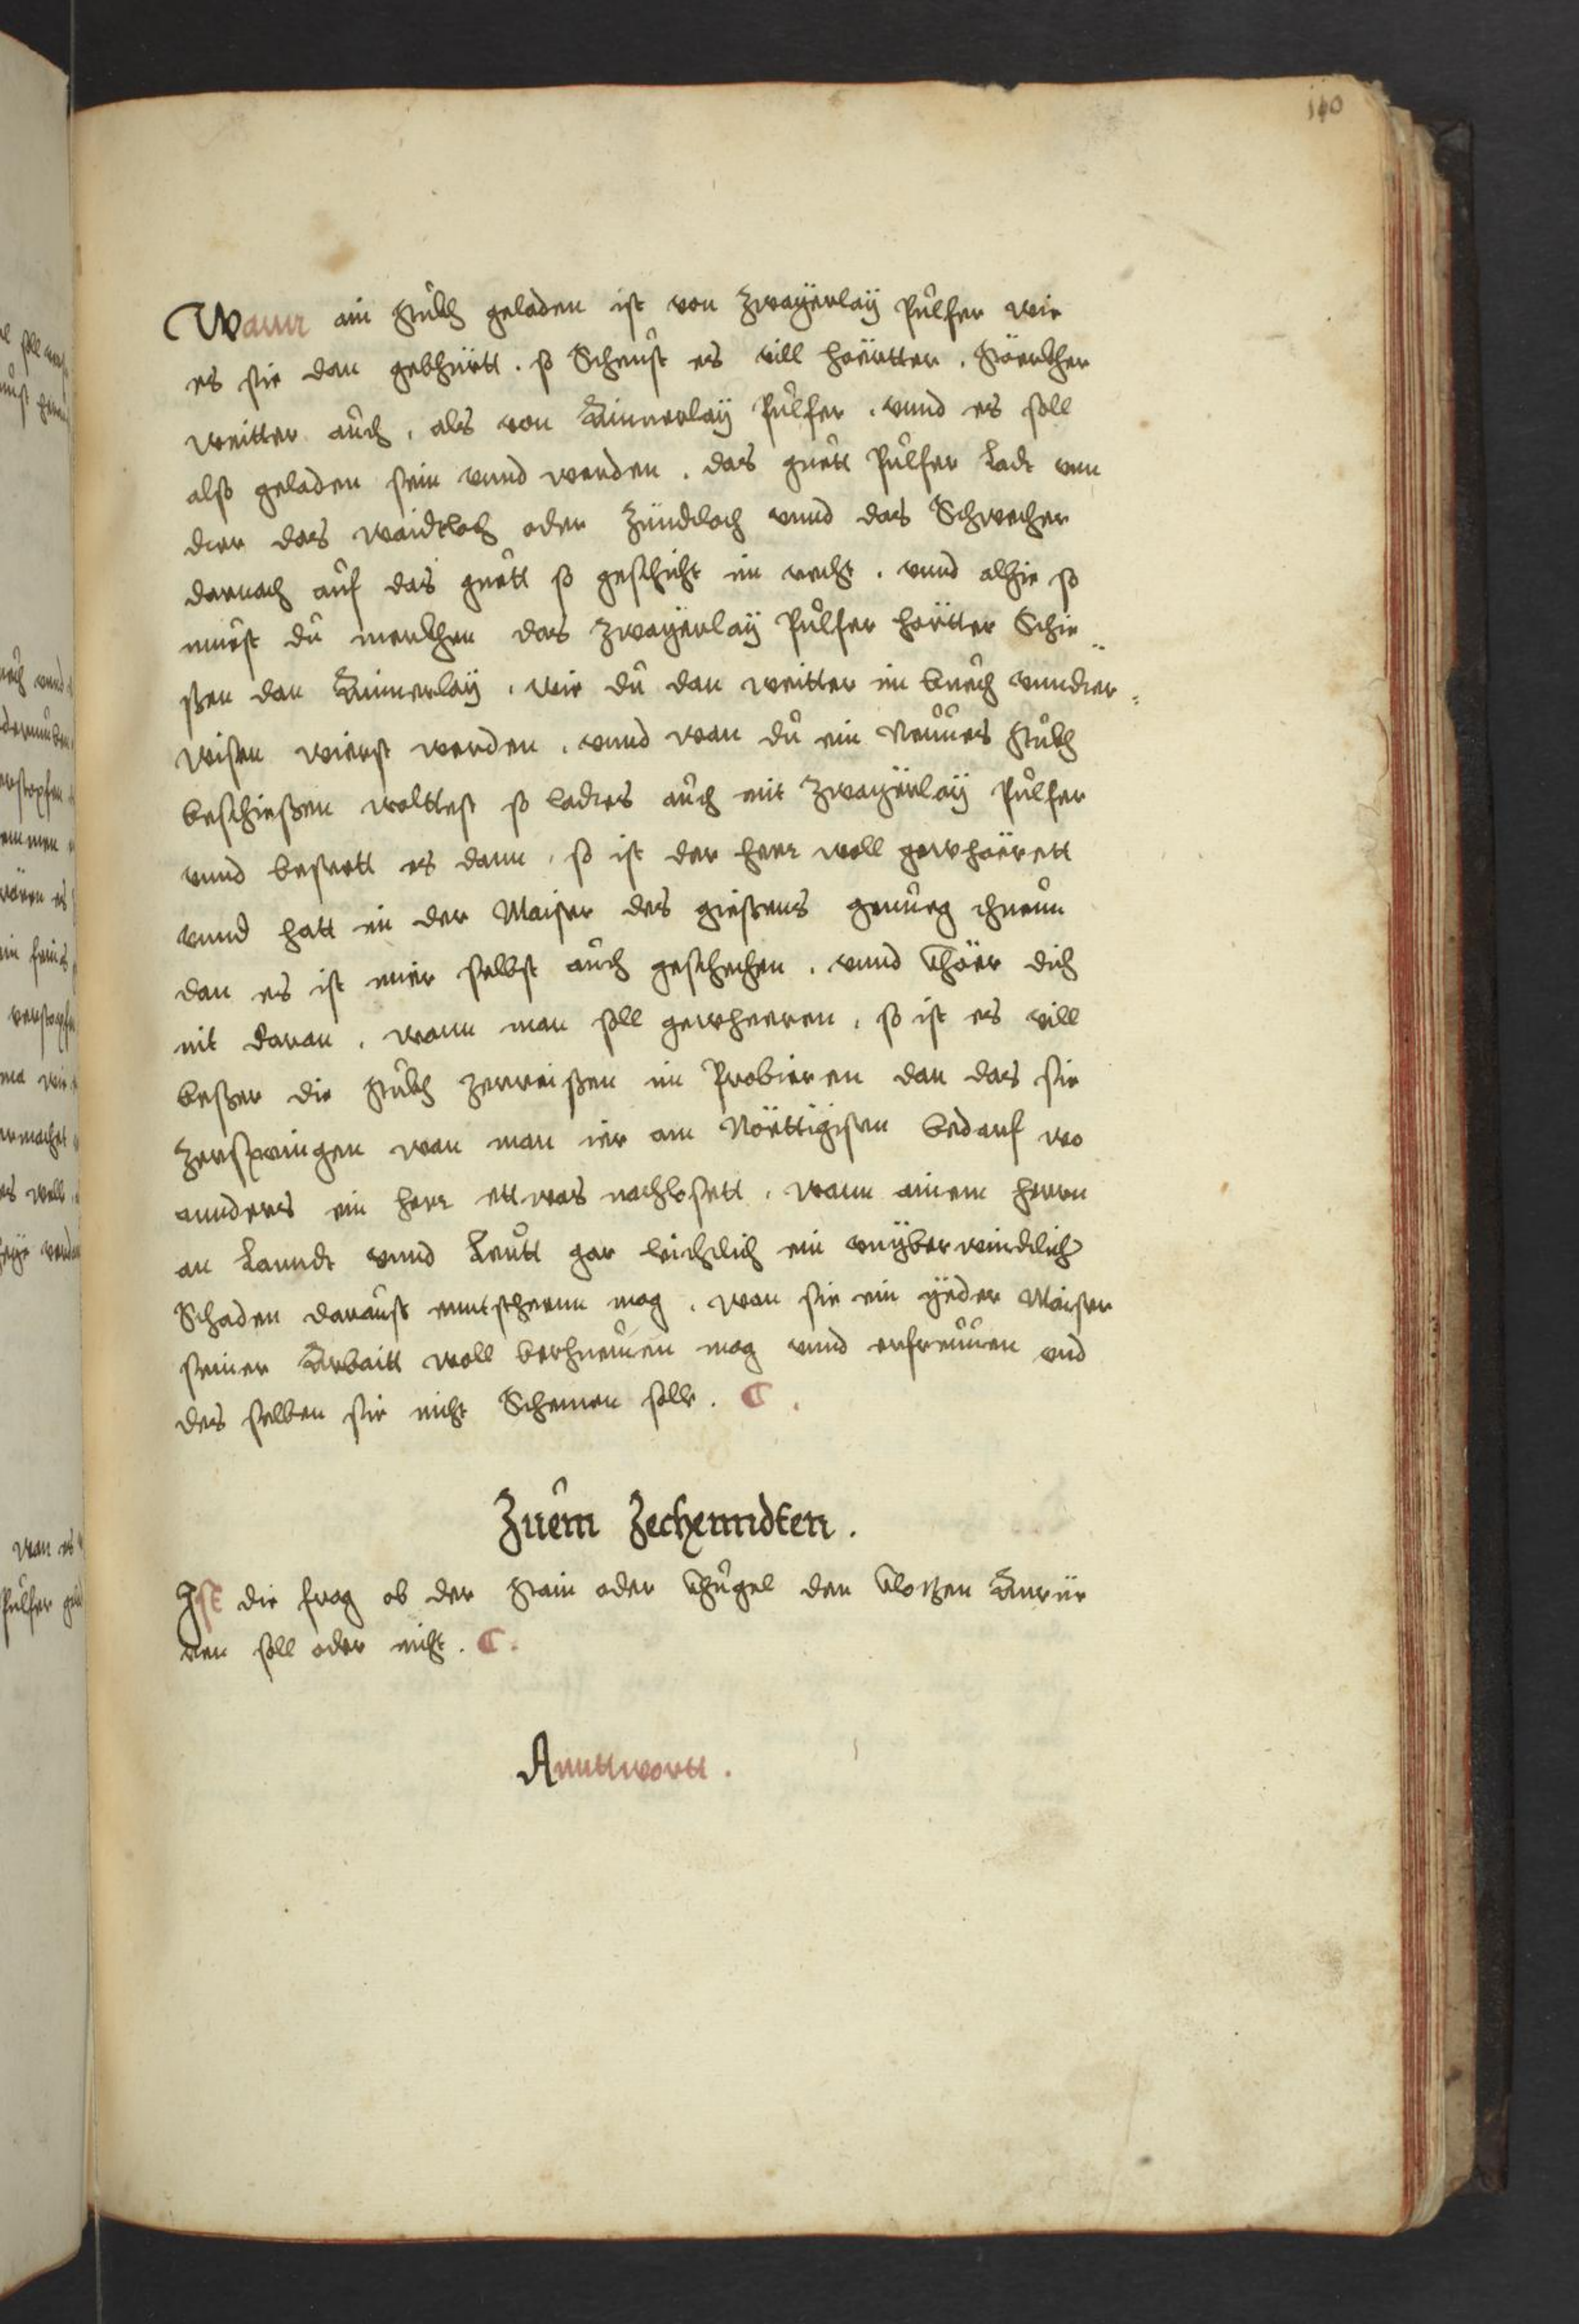 140
Wann ain stuckh geladen ist von Zwayerlaÿ Pulfer wie
es sie dan gebhürtt . so Scheust es vill hörtter . störckher
weitter auch . als von Ainnerlaÿ Pulfer . vnnd es soll
also geladen sein vnnd werden . das guett Pulfer Ladt vnn
dier das waidtloch oder Zündtloch vnnd das Schwecher
darnach auf das guett so geschicht im recht . vnnd alhie so
muest du merckhen das Zwayerlaÿ Pulfer hörtter Schie
ßen dan Ainnerlaÿ . wie du dan weitter im buech vnndter
wisen wierst werden . vnnd wan du ein Neuues stuckh
beschießen woltest so ladtes auch mit Zwayerlaÿ Pulfer
vnnd bestett es dann . so ist der herr woll gewhörett
vnnd hatt im der Maister des gießens genueg
dan es ist mier selbst auch geschechen . vnnd khöer dich
nit daran . wann man soll gewheeren . so ist es vill
beßer die stuckh zerreißen im Probieren dan das sie
Zerspringen wan man ier am Nöettigisten bedarf wo
annders ein herr ettwas nachlosett . wann ainem herrn
an Lanndt vnnd Leutt gar leichtlich ein vnyberwindtlich
Schaden daraust enntstheenn mag . wan sie ein yeder Maister
seiner Arbaitt woll berhuemen mag vnnd erfreuuen vnd
des selben sie nicht Schemen solle . C .
Zuem Zechenndten .
Ist die frag ob der stain oder khugel den klotzen Anrüe
ren soll oder nicht . C .
Annttwortt .